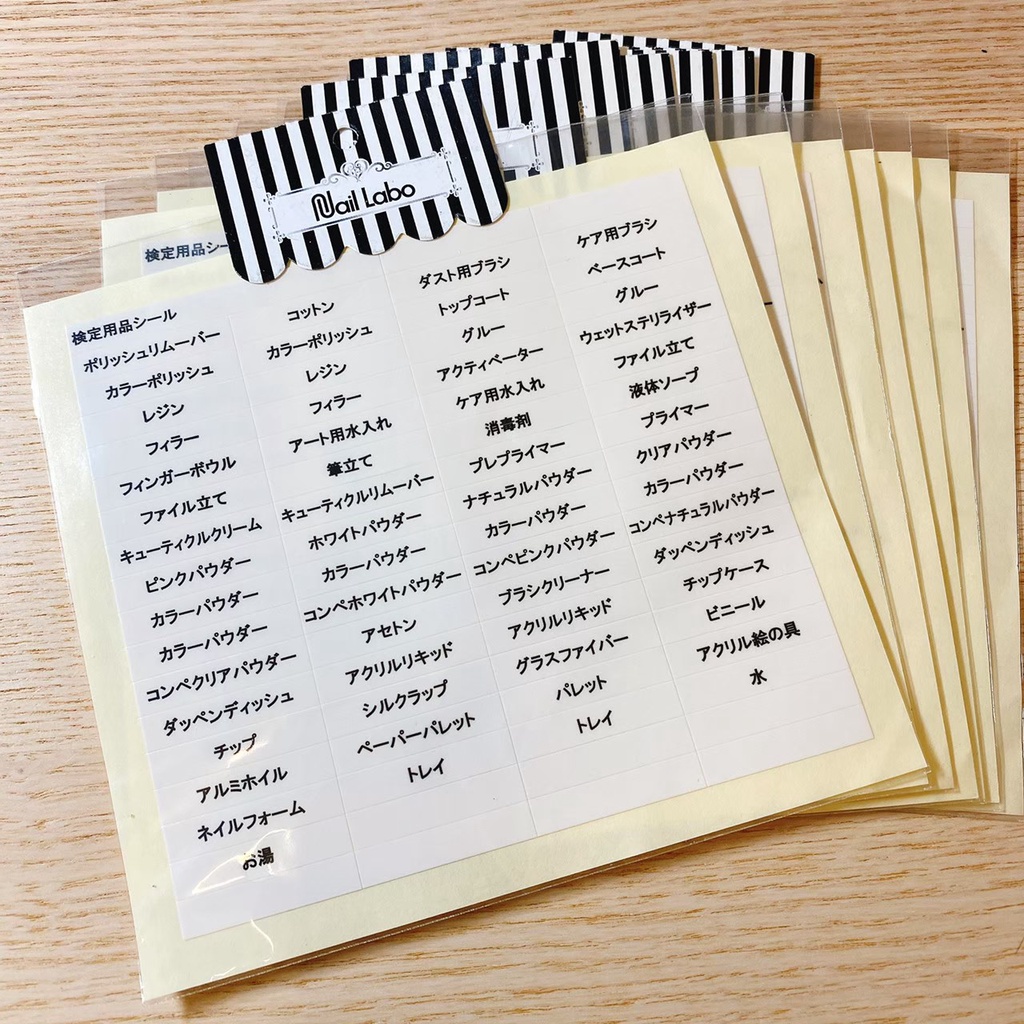 Nail Labo
検定用品シー
検定用品シール
ポリッシュリムーバー
カラーポリッシュ
レジン
フィラー
フィンガーボウル
ファイル立て
キューティクルクリーム
ピンクパウダー
カラーパウダー
カラーパウダー
コンペクリアパウダー
ダッペンディッシュ
チップ
アルミホイル
ネイルフォーム
お湯
コットン
カラーポリッシュ
レジン
フィラー
アート用水入れ
筆立て
キューティクルリムーバー
ホワイトパウダー
カラーパウダー
コンペホワイトパウダー
アセトン
アクリルリキッド
シルクラップ
ペーパーパレット
トレイ
ダスト用ブラシ
トップコート
グルー
アクティベーター
ケア用水入れ
消毒剤
プレプライマー
ナチュラルパウダー
カラーパウダー
コンペピンクパウダー
ブラシクリーナー
アクリルリキッド
グラスファイバー
パレット
トレイ
ケア用ブラシ
ベースコート
グルー
ウェットステリライザー
ファイル立て
液体ソープ
プライマー
クリアパウダー
カラーパウダー
コンペナチュラルパウダー
ダッペンディッシュ
チップケース
ビニール
アクリル絵の具
水